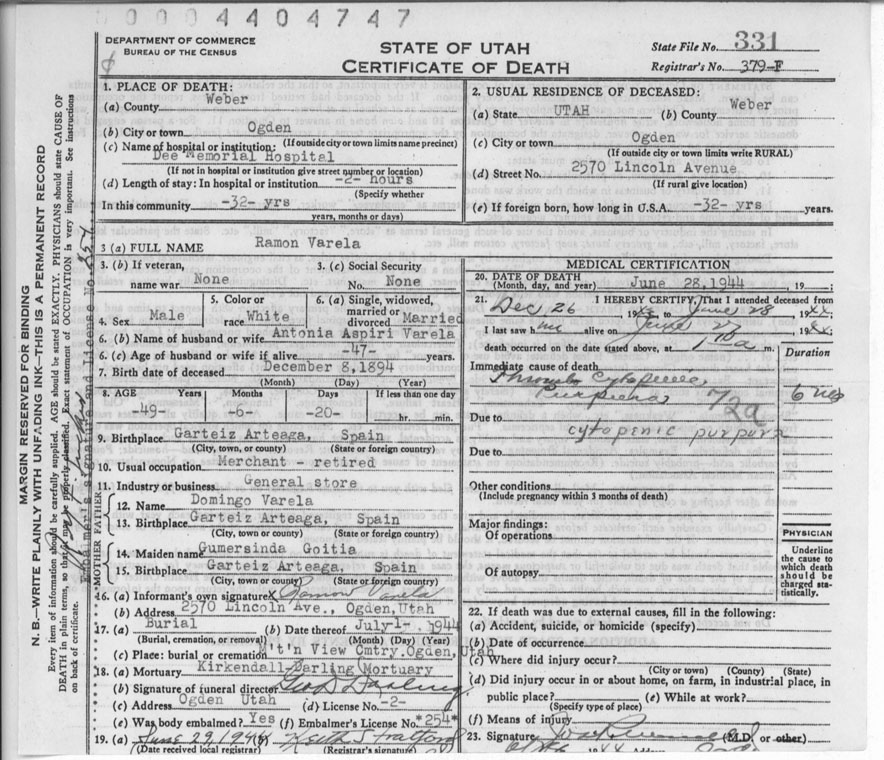 00004404747
DEPARTMENT OF COMMERCE
BUREAU OF THE CENSUS
STATE OF UTAH
CERTIFICATE OF DEATH
State File No. 331
Registrar's No. 379-F
MARGIN RESERVED FOR BINDING
N. B.—WRITE PLAINLY WITH UNFADING INK—THIS IS A PERMANENT RECORD
Every item of information should be carefully supplied. AGE should be stated EXACTLY. PHYSICIANS should state CAUSE OF
DEATH in plain terms, so that it may be properly classified. Exact statement of OCCUPATION is very important. See instructions
on back of certificate.
Embalmer's signature and license No. 254
1. PLACE OF DEATH:
(a) County Weber
(b) City or town Ogden
(If outside city or town limits name precinct)
(c) Name of hospital or institution:
Dee Memorial Hospital
(If not in hospital or institution give street number or location)
(d) Length of stay: In hospital or institution -2- hours
(Specify whether
In this community -32- yrs
years, months or days)
2. USUAL RESIDENCE OF DECEASED:
(a) State UTAH (b) County Weber
(c) City or town Ogden
(If outside city or town limits write RURAL)
(d) Street No. 2570 Lincoln Avenue
(If rural give location)
(e) If foreign born, how long in U.S.A. -32- yrs years.
3 (a) FULL NAME Ramon Varela
3. (b) If veteran,
name war None
3. (c) Social Security
No. None
4. Sex Male
5. Color or
race White
6. (a) Single, widowed,
married or
divorced Married
6. (b) Name of husband or wife Antonia Aspiri Varela
6. (c) Age of husband or wife if alive -47- years.
7. Birth date of deceased December 8, 1894
(Month) (Day) (Year)
8. AGE Years Months Days If less than one day
-49- -6- -20- hr. min.
9. Birthplace Garteiz Arteaga, Spain
(City, town, or county) (State or foreign country)
10. Usual occupation Merchant - retired
11. Industry or business General store
FATHER
12. Name Domingo Varela
13. Birthplace Garteiz Arteaga, Spain
(City, town, or county) (State or foreign country)
MOTHER
14. Maiden name Gumersinda Goitia
15. Birthplace Garteiz Arteaga, Spain
(City, town, or county) (State or foreign country)
16. (a) Informant's own signature x Ramon Varela
(b) Address 2570 Lincoln Ave., Ogden, Utah
17. (a) Burial (b) Date thereof July-1-, 1944
(Burial, cremation, or removal) (Month) (Day) (Year)
(c) Place: burial or cremation M't'n View Cmtry. Ogden, Utah
18. (a) Mortuary Kirkendall-Darling Mortuary
(b) Signature of funeral director Geo D Darling
(c) Address Ogden Utah (d) License No. -2-
(e) Was body embalmed? Yes (f) Embalmer's License No. *254*
19. (a) June 29, 1944 (b) Keith S Fratford
(Date received local registrar) (Registrar's signature)
MEDICAL CERTIFICATION
20. DATE OF DEATH
(Month, day, and year) June 28, 1944, 19
21. I HEREBY CERTIFY, That I attended deceased from
Dec 26 19 to June 28, 19
I last saw him alive on June 27 19
death occurred on the date stated above, at 1 10 a m.
Duration
Immediate cause of death
Thrombo Cytopenia
Purpura
6 mos
72a
Due to
cytopenic purpura
Due to
Other conditions
(Include pregnancy within 3 months of death)
Major findings:
Of operations
Of autopsy
PHYSICIAN
Underline
the cause to
which death
should be
charged sta-
tistically.
22. If death was due to external causes, fill in the following:
(a) Accident, suicide, or homicide (specify)
(b) Date of occurrence
(c) Where did injury occur?
(City or town) (County) (State)
(d) Did injury occur in or about home, on farm, in industrial place, in
public place? (e) While at work?
(Specify type of place)
(f) Means of injury
23. Signature (M.D. or other)